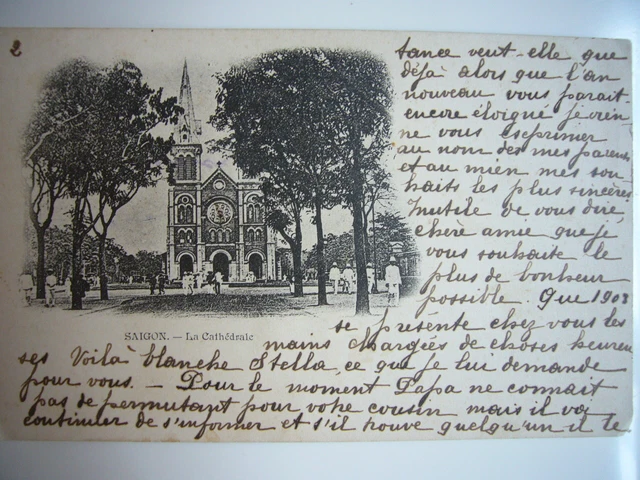 2
tance veut-elle que
déjà alors que l'an
nouveau vous parait
encore éloigné je vien
ne vous exprimer
au nom des mes parents
et au mien mes sou
haits les plus sincères
Inutile de vous dire,
chère amie que je
vous souhaite le
plus de bonheur
possible. Que 1903
se présente chez vous les
mains chargées de choses heureu
ses Voilà blanche Stella, ce que je lui demande
pour vous. — Pour le moment Papa ne connait
pas de permutant pour votre cousin mais il va
continuer de s'informer et s'il trouve quelqu'un il le
SAIGON. — La Cathédrale